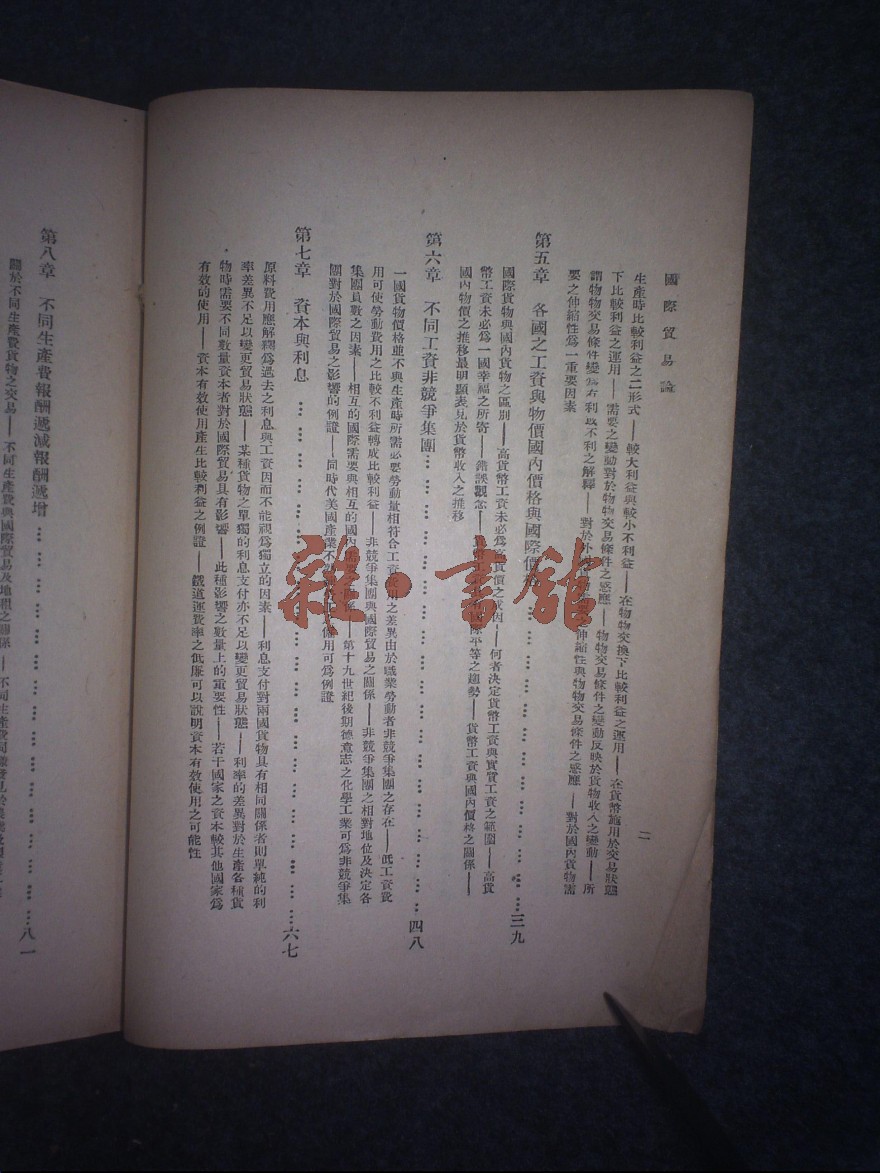 國際貿易論
二
生產時比較利益之二形式——較大利益與較小不利益——在物物交換下比較利益之運用——在貨幣施用於交易狀態
下比較利益之運用——需要之變動對於物物交易條件之感應——物物交易條件之變動反映於貨物收入之變動——所
謂物物交易條件變為有利或不利之解釋——對於外
伸縮性與物物交易條件之感應——對於國內貨物需
要之伸縮性為一重要因素
第五章 各國之工資與物價國內價格與國際價格……三九
國際貨物與國內貨物之區別——高貨幣工資未必為高貨價之成因——何者決定貨幣工資與實質工資之範圍——高貨
幣工資未必為一國幸福之所寄——錯誤觀念——貨幣工資
國際平等之趨勢——貨幣工資與國內價格之關係——
國內物價之推移最明顯表見於貨幣收入之推移
第六章 不同工資非競爭集團……四八
一國貨物價格並不與生產時所需必要勞動量相符合工資費用之差異由於職業勞動者非競爭集團之存在——低工資費
用可使勞動費用之比較不利益轉成比較利益——非競爭集團與國際貿易之關係——非競爭集團之相對地位及決定各
集團員數之因素——相互的國際需要與相互的國內
第十九世紀後期德意志之化學工業可為非競爭集
團對於國際貿易之影響的例證——同時代美國產業不
用可為例證
第七章 資本與利息……六七
原料費用應解釋為過去之利息與工資因而不能視為獨立的因素——利息支付對兩國貨物具有相同關係者則單純的利
率差異不足以變更貿易狀態——某種貨物之單獨的利息支付亦不足以變更貿易狀態——利率的差異對於生產各種貨
物時需要不同數量資本者對於國際貿易具有影響——此種影響之數量上的重要性——若干國家之資本較其他國家為
有效的使用——資本有效使用產生比較利益之例證——鐵道運費率之低廉可以說明資本有效使用之可能性
第八章 不同生產費報酬遞減報酬遞增……八一
關於不同生產費貨物之交易——不同生產費與國際貿易及地租之關係
雜·書館